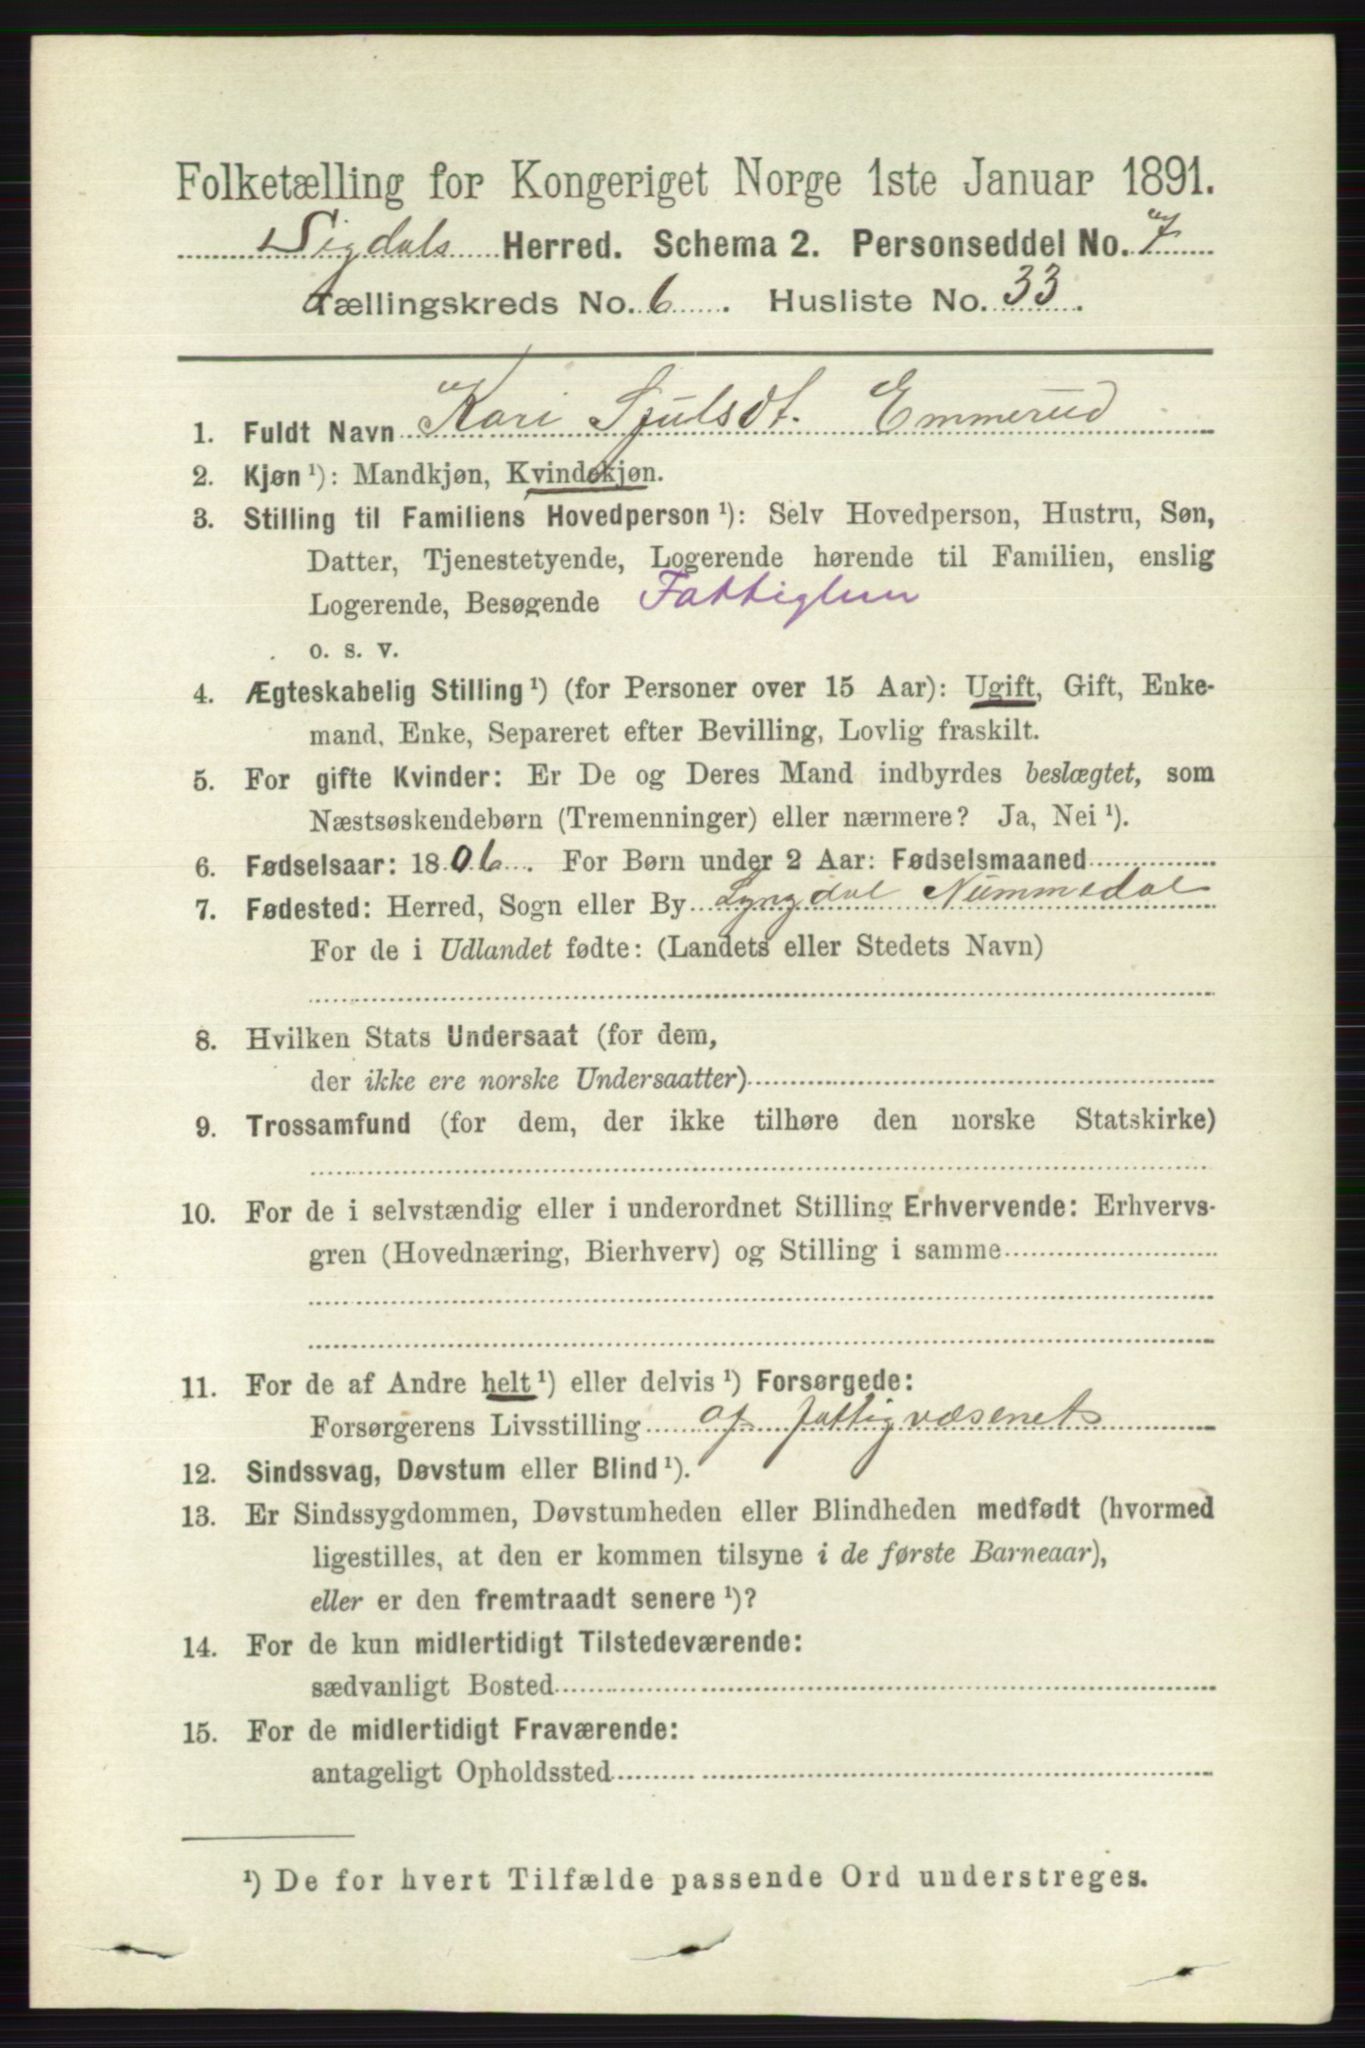 Folketælling for Kongeriget Norge 1ste Januar 1891.
Sigdals Herred. Schema 2. Personseddel No. 7
Tællingskreds No. 6. Husliste No. 33.
1. Fuldt Navn Kari Sjulsdt. Emmerud
2. Kjøn ¹): Mandkjøn, Kvindekjøn.
3. Stilling til Familiens Hovedperson ¹): Selv Hovedperson, Hustru, Søn,
Datter, Tjenestetyende, Logerende hørende til Familien, enslig
Logerende, Besøgende Fattiglem
o. s. v.
4. Ægteskabelig Stilling ¹) (for Personer over 15 Aar): Ugift, Gift, Enke-
mand, Enke, Separeret efter Bevilling, Lovlig fraskilt.
5. For gifte Kvinder: Er De og Deres Mand indbyrdes beslægtet, som
Næstsøskendebørn (Tremenninger) eller nærmere? Ja, Nei ¹).
6. Fødselsaar: 1806. For Børn under 2 Aar: Fødselsmaaned
7. Fødested: Herred, Sogn eller By Lyngdal Nummedal
For de i Udlandet fødte: (Landets eller Stedets Navn)
8. Hvilken Stats Undersaat (for dem,
der ikke ere norske Undersaatter)
9. Trossamfund (for dem, der ikke tilhøre den norske Statskirke)
10. For de i selvstændig eller i underordnet Stilling Erhvervende: Erhvervs-
gren (Hovednæring, Bierhverv) og Stilling i samme
11. For de af Andre helt ¹) eller delvis ¹) Forsørgede:
Forsørgerens Livsstilling af fattigvæsenet
12. Sindssvag, Døvstum eller Blind ¹).
13. Er Sindssygdommen, Døvstumheden eller Blindheden medfødt (hvormed
ligestilles, at den er kommen tilsyne i de første Barneaar),
eller er den fremtraadt senere ¹)?
14. For de kun midlertidigt Tilstedeværende:
sædvanligt Bosted
15. For de midlertidigt Fraværende:
antageligt Opholdssted
¹) De for hvert Tilfælde passende Ord understreges.